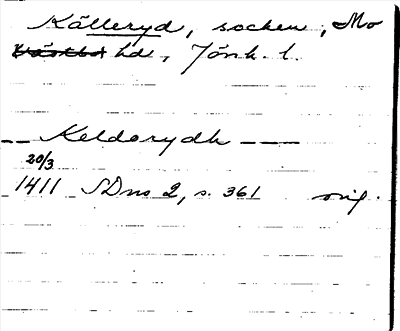 Källeryd, socken, Mo
Västbo hd, Jönk. l.
Keldorydh
20/3
1411 SDns 2, s. 361 orig.